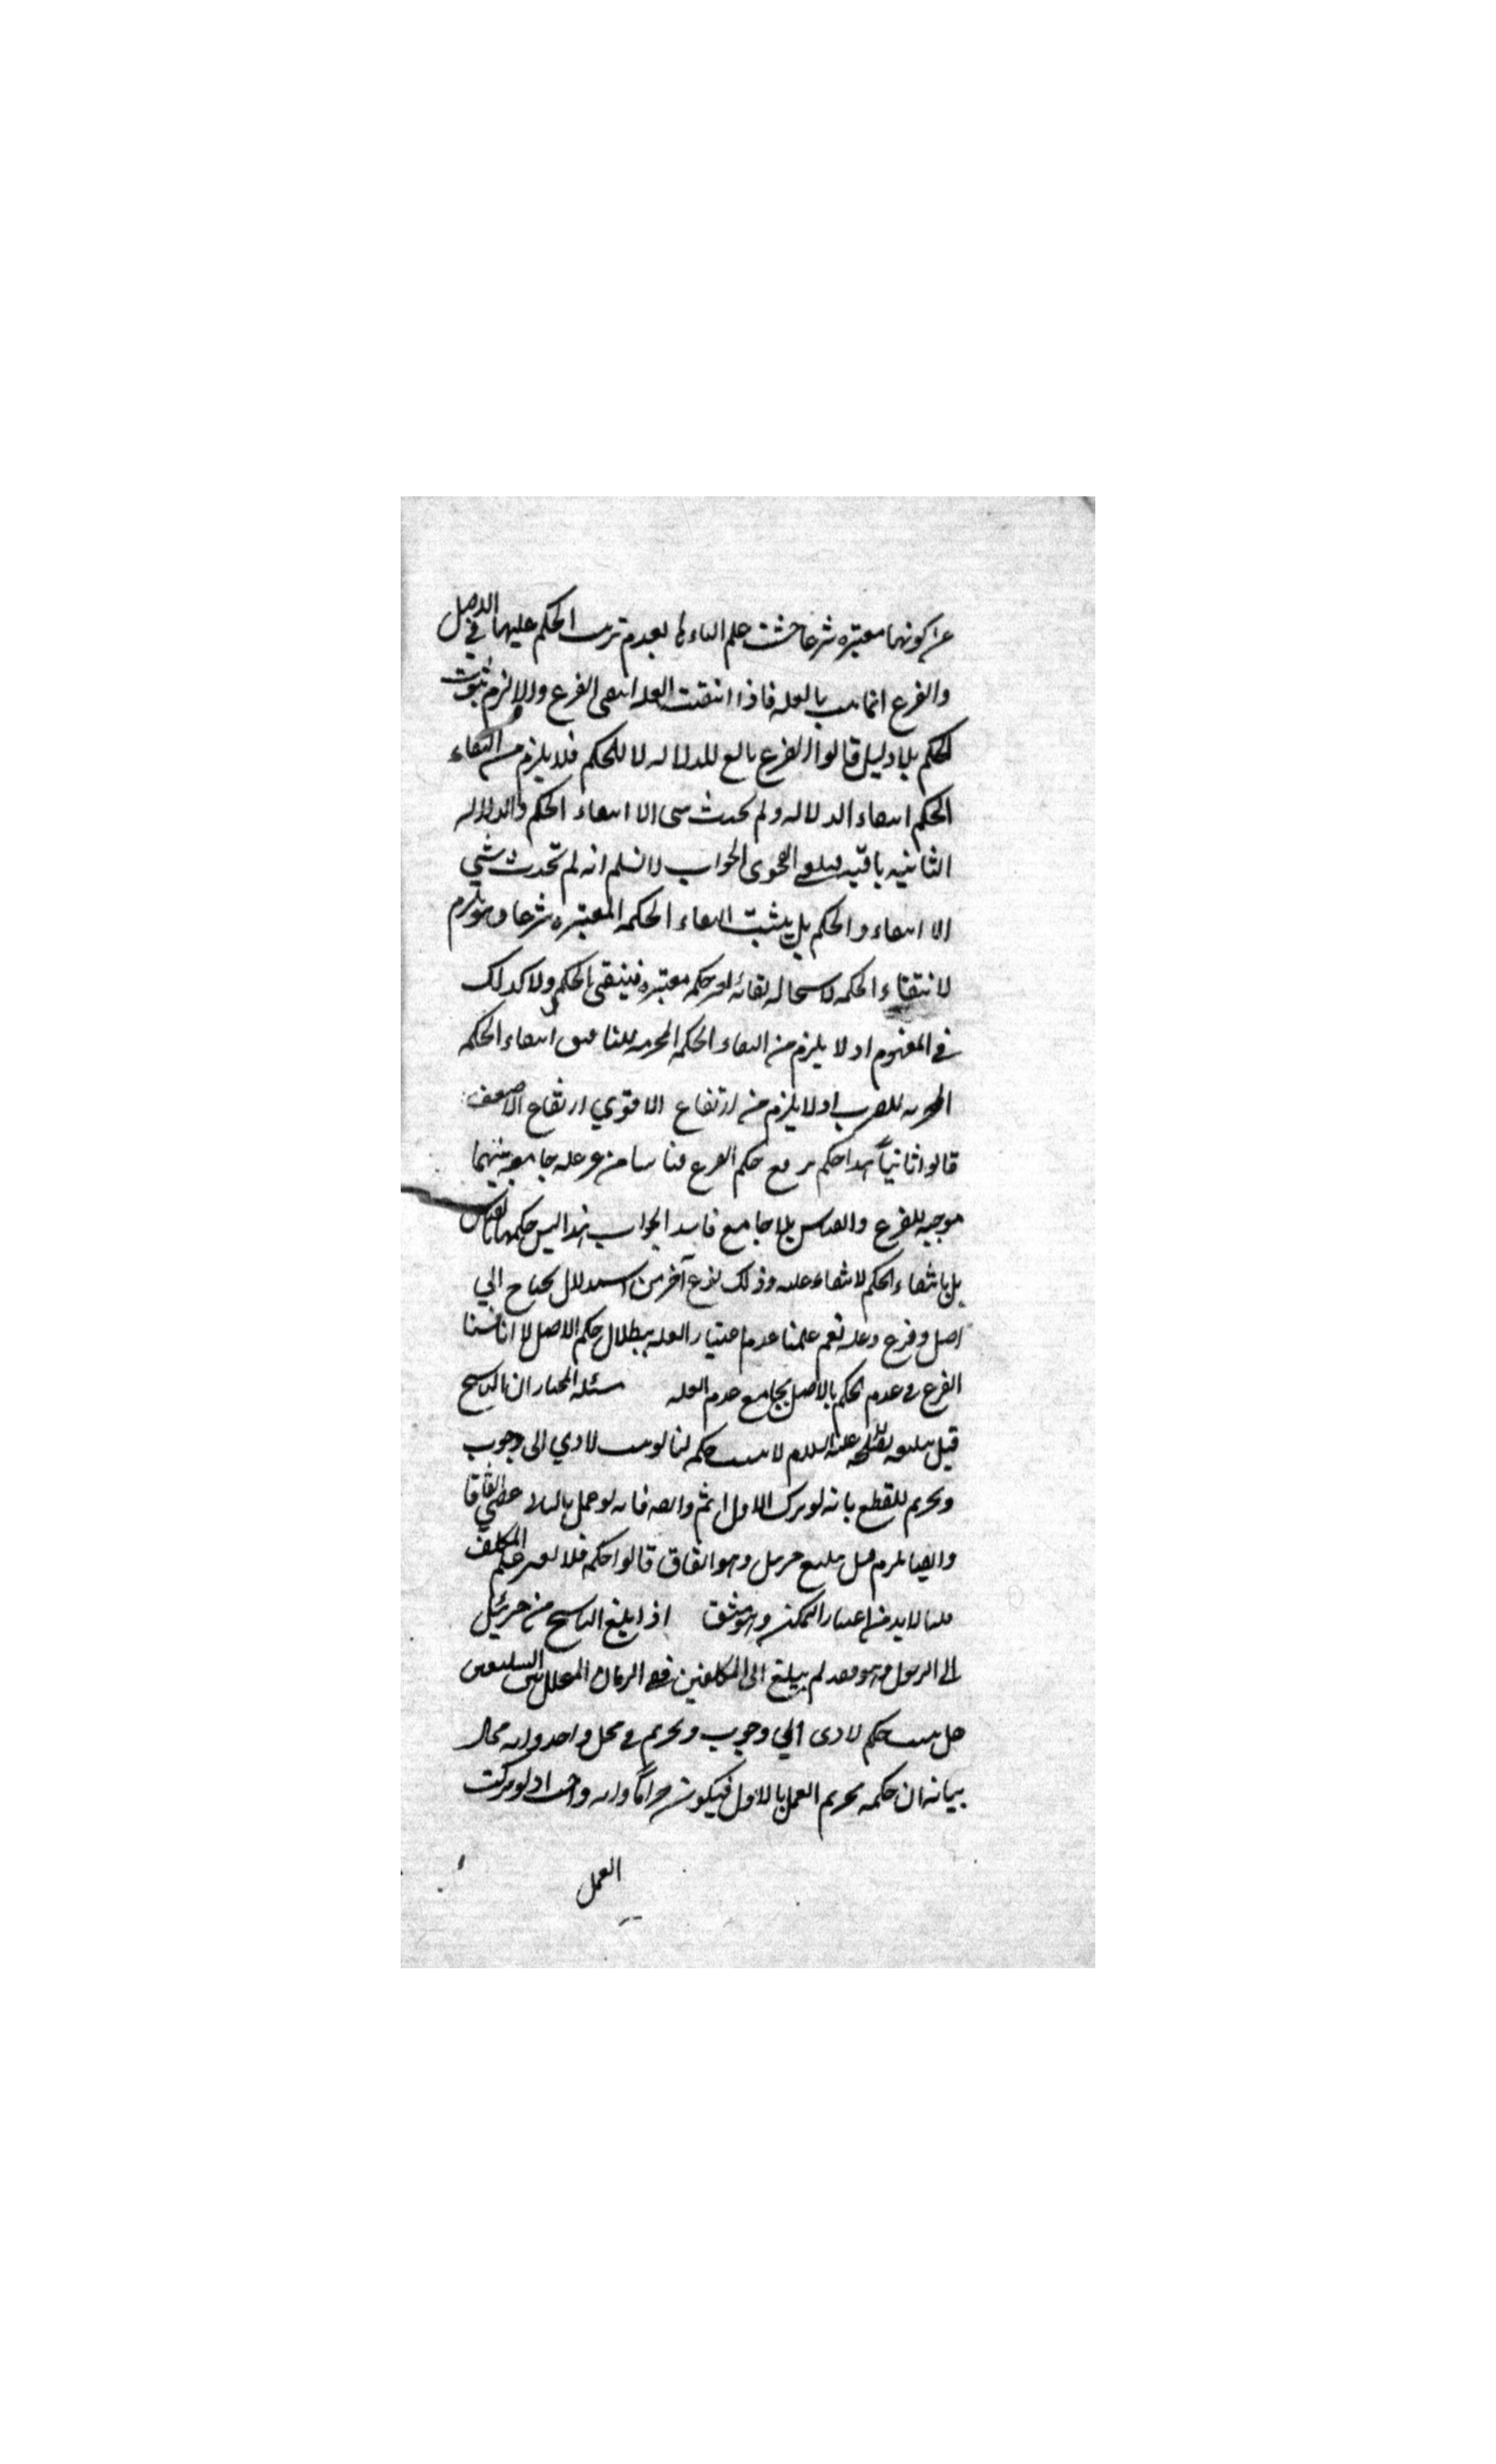 عن كونها معتبرة شرعا حيث علم الغاءها بعدم ترتب الحكم عليها في الاصل
والفرع انما ثبت بالعلة فاذا انتفت العلة انتفى الفرع والا لزم ثبوت
الحكم بلا دليل قالوا الفرع تابع للدلالة لا للحكم فلا يلزم من انتفاء
الحكم انتفاء الدلالة ولم يحدث شى الا انتفاء الحكم والدلالة
الثانيه باقيه الفحوى الجواب لا نسلم انه لم تحدث شي
الا انتفاء الحكم بل يثبت انتفاء الحكمه المعتبره شرعا وهو يلزم
لانتفاء الحكمه لاستحاله بقائه لغير حكمه معتبره فينتفي الحكم ولا كذلك
في المفهوم اذ لا يلزم من انتفاء الحكمه المحرمه للتافيف انتفاء الحكمه
المحرمه للضرب اذ لا يلزم من ارتفاع الاقوي ارتفاع الاضعف
قالوا ثانياً هذا حكم برفع حكم الفرع قياسا من غير علة جامعه بينهما
موجبه للفرع والقياس بلا جامع فاسد الجواب هذا ليس حكما بالقياس
بل بانتفاء الحكم لانتفاء علته وذلك نوع آخر من الاستدلال يحتاج الي
اصل وفرع وعلة نعم علمنا عدم اعتبار العلة ببطلان حكم الاصل لا انا قسنا
الفرع في عدم الحكم بالاصل بجامع عدم العله مسئله المختار ان الناسخ
قبل تبليغه عليه السلام لا يثبت حكمه لنا لو ثبت لادي الى وجوب
وتحريم للقطع بانه لو ترك الاول اثم وايضا فانه لو عمل بالثاني عصي اتفاقا
وايضا يلزم قبل تبليغ جبريل وهو اتفاق قالوا حكم فلا يعتبر علم المكلف
قلنا لا بد من اعتبار التمكن وهو منتف اذا بلغ الناسخ من جبرئيل
الى الرسول وهو بعد لم يبلغ الى المكلفين ففي الزمان المتخلل بين التبليغين
هل يثبت حكم لادى الي وجوب وتحريم في محل واحد وانه محال
بيانه ان حكمه تحريم العمل بالاول فيكون حراماً وانه واجب اذ لو تركت
العمل